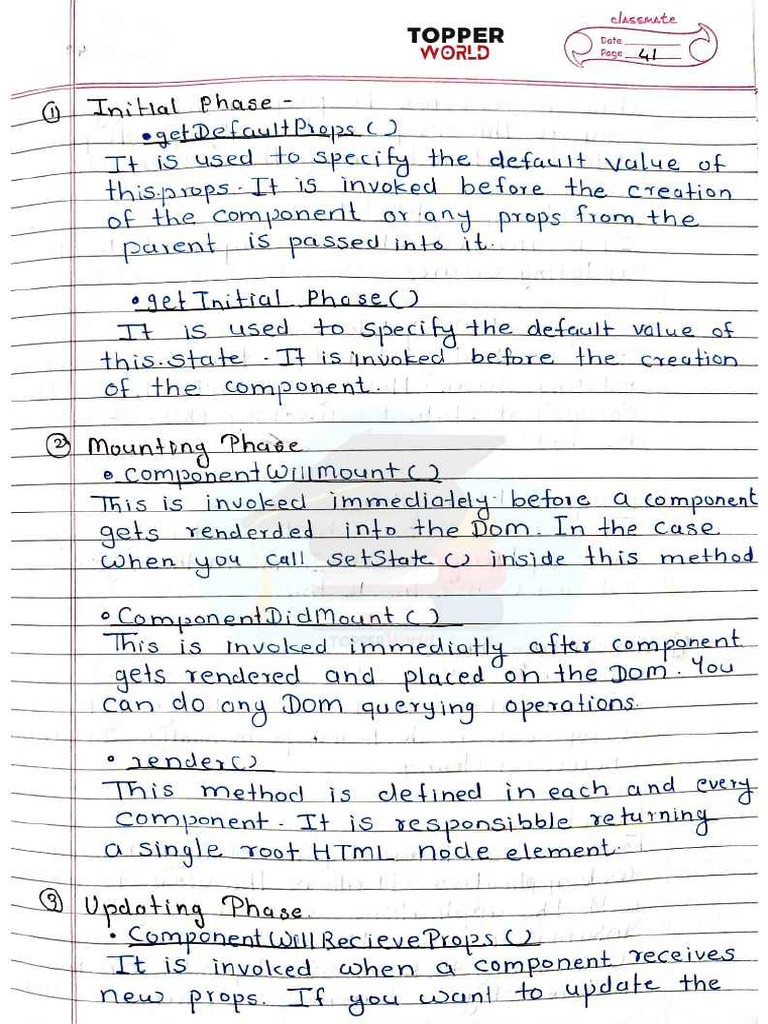 classmate
TOPPER
WORLD
Date
Page 41
① Initial Phase -
• getDefaultProps ( )
It is used to specify the default value of
this.props. It is invoked before the creation
of the component or any props from the
parent is passed into it.
• getInitial Phase ( )
It is used to specify the default value of
this.state. It is invoked before the creation
of the component.
② Mounting Phase
• componentWillMount ( )
This is invoked immediately before a component
gets renderded into the Dom. In the case
when you call setState ( ) inside this method
• ComponentDidMount ( )
This is invoked immediatly after component
gets rendered and placed on the Dom. You
can do any Dom querying operations.
• render ( )
This method is defined in each and every
component. It is responsibble returning
a single root HTML node element.
③ Updating Phase.
• ComponentWillRecieveProps ( )
It is invoked when a component receives
new props. If you want to update the